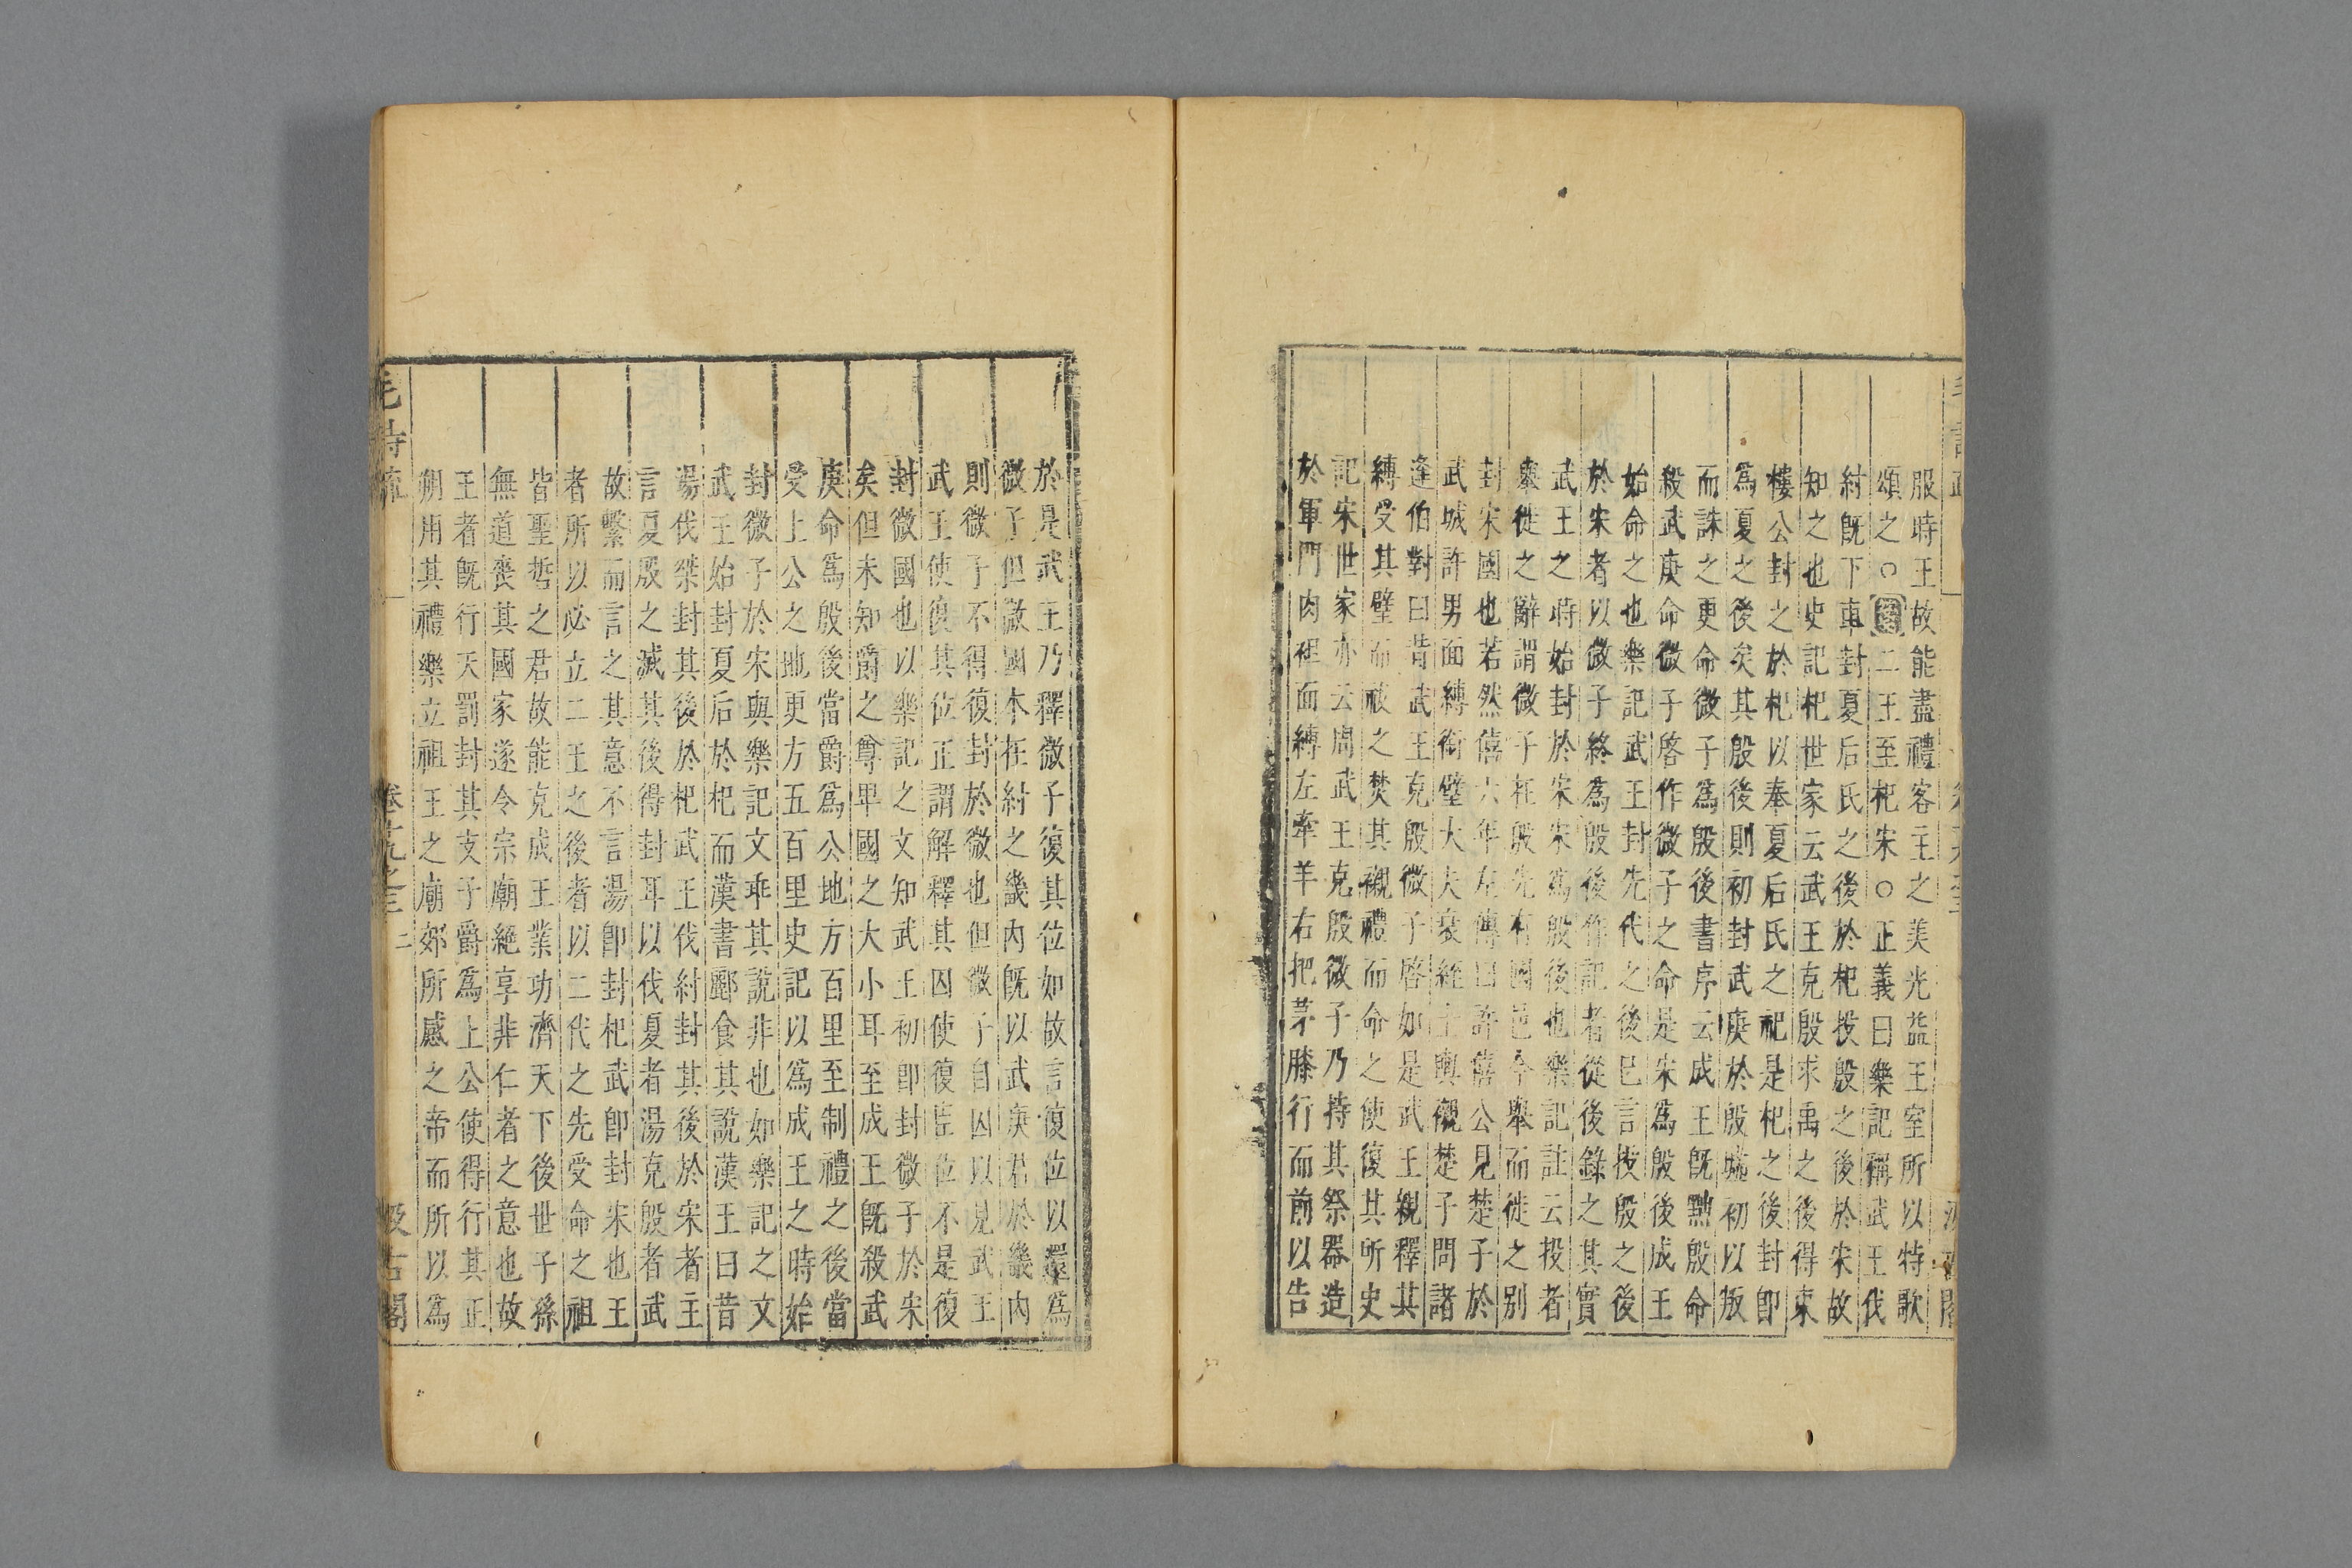 服時王故能盡禮客主之美光益王室所以特歌
頌之○疏二王至杞宋○正義曰樂記稱武王伐
紂旣下車封夏后氏之後於杞投殷之後於宋故
知之也史記杞世家云武王克殷求禹之後得東
樓公封之於杞以奉夏后氏之祀是杞之後封卽
爲夏之後矣其殷後則初封武庚於殷墟初以叛
而誅之更命微子爲殷後書序云成王旣黜殷命
殺武庚命微子啓作微子之命是宋爲殷後成王
始命之也樂記武王封先代之後巳言投殷之後
於宋者以微子終爲殷後作記者從後錄之其實
武王之時始封於宋宋爲殷後也樂記註云投者
舉徙之辭謂微子在殷先有國邑今舉而徙之別
封宋國也若然僖六年左傳曰許僖公見楚子於
武城許男面縛銜璧大夫衰絰士輿櫬楚子問諸
逢伯對曰昔武王克殷微子啓如是武王親釋其
縛受其璧而祓之焚其櫬禮而命之使復其所史
記宋世家亦云周武王克殷微子乃持其祭器造
於軍門肉袒面縛左牽羊右把茅膝行而前以告
於是武王乃釋微子復其位如故言復位以還爲
微子但微國本在紂之畿內旣以武庚君於畿內
則微子不得復封於微也但微子自囚以見武王
武王使復其位正謂解釋其囚使復臣位不是復
封微國也以樂記之文知武王初卽封微子於宋
矣但未知爵之尊卑國之大小耳至成王旣殺武
庚命爲殷後當爵爲公地方百里至制禮之後當
受上公之地更方五百里史記以爲成王之時始
封微子於宋與樂記文乖其說非也如樂記之文
武王始封夏后於杞而漢書酈食其說漢王曰昔
湯伐桀封其後於杞武王伐紂封其後於宋者主
言夏殷之滅其後得封耳以伐夏者湯克殷者武
故繫而言之其意不言湯卽封杞武卽封宋也王
者所以必立二王之後者以二代之先受命之祖
皆聖哲之君故能克成王業功濟天下後世子孫
無道喪其國家遂令宗廟絕享非仁者之意也故
王者旣行天罰封其支子爵爲上公使得行其正
朔用其禮樂立祖王之廟郊所感之帝而所以爲
毛詩疏 卷十九之三 二 汲古閣